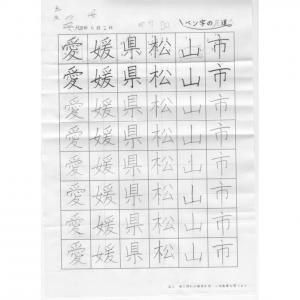 ペン字の
愛媛県松山市
愛媛県松山市
愛媛県松山市
愛媛県松山市
愛媛県松山市
愛媛県松山市
愛媛県松山市
愛媛県松山市